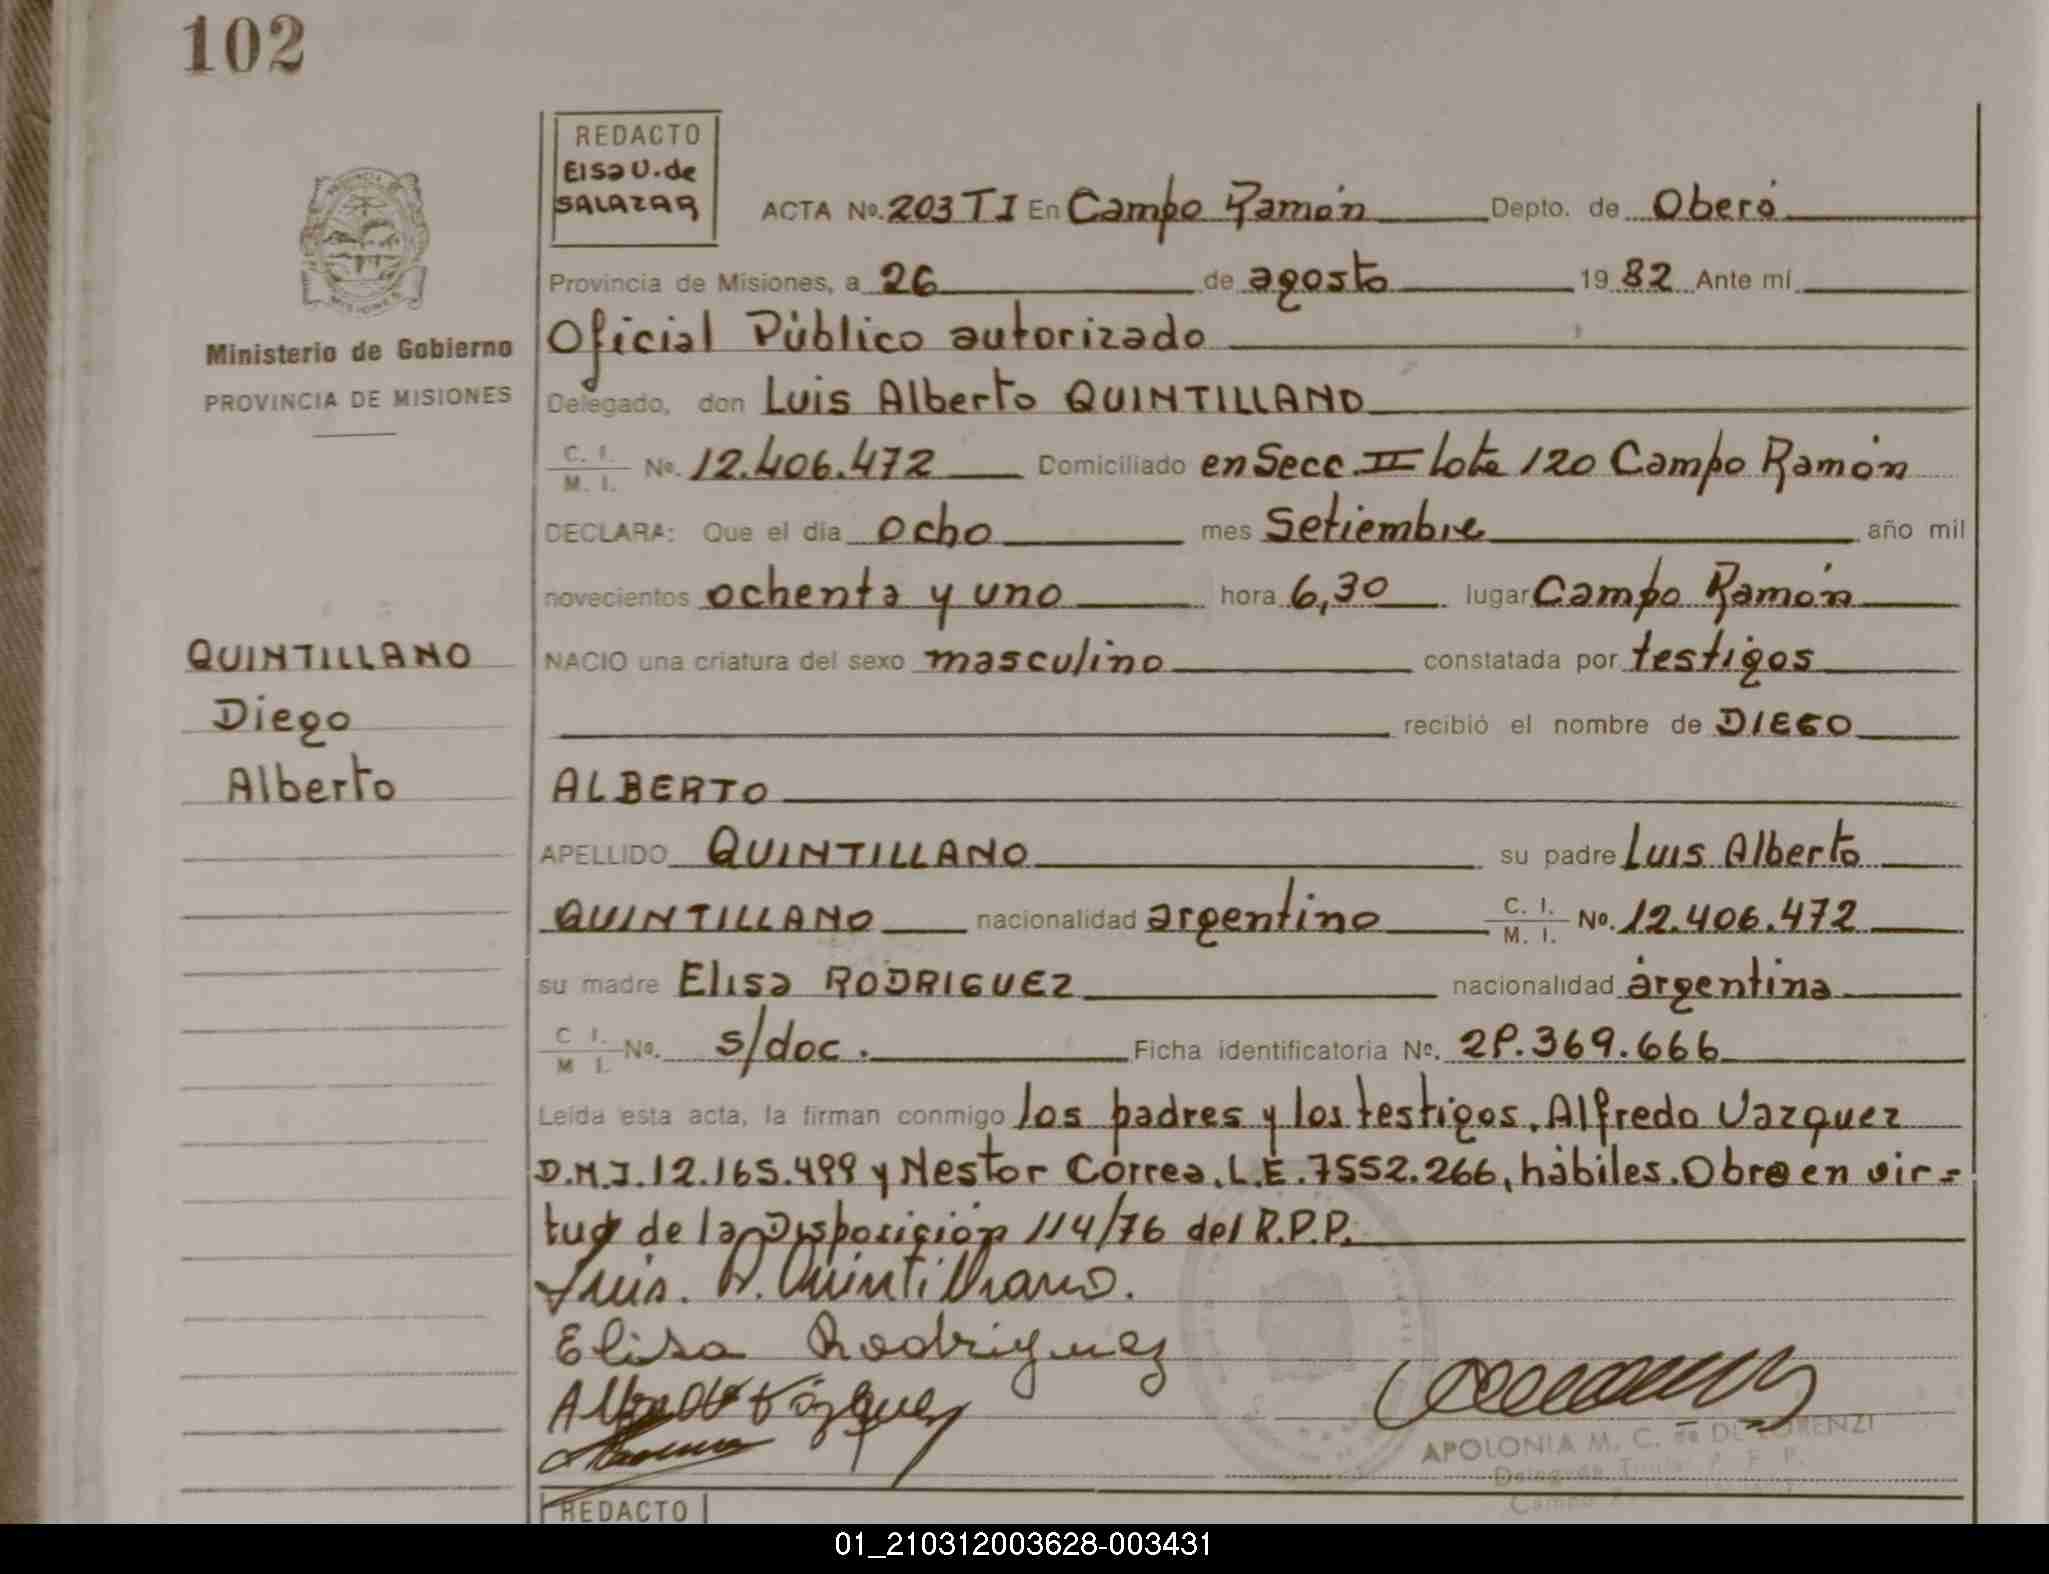 102
REDACTO
Elsa V. de
SALAZAR
ACTA No. 203 TI En Campo Ramón Depto. de Oberá
Provincia de Misiones, a 26 de agosto 1982 Ante mí
Oficial Público autorizado
Ministerio de Gobierno
PROVINCIA DE MISIONES
Delegado, don Luis Alberto QUINTILLANO
C. I.
M. I. No. 12.406.472 Domiciliado en Secc. II lote 120 Campo Ramón
DECLARA: Que el día ocho mes Setiembre año mil
novecientos ochenta y uno hora 6,30 lugar Campo Ramón
QUINTILLANO
Diego
Alberto
NACIO una criatura del sexo masculino constatada por testigos
recibió el nombre de DIEGO
ALBERTO
APELLIDO QUINTILLANO su padre Luis Alberto
QUINTILLANO nacionalidad argentino C. I. M. I. No. 12.406.472
su madre Elisa RODRIGUEZ nacionalidad argentina
C I. M I. No. s/doc. Ficha identificatoria No. 2P.369.666
Leída esta acta, la firman conmigo los padres y los testigos, Alfredo Vazquez
D.N.I. 12.165.499 y Nestor Correa, L.E. 7552.266, hábiles. Obro en vir=
tud de la Disposición 114/76 del R.P.P.
Luis. A. Quintillano.
Elisa Rodriguez
Vázquez
APOLONIA M. C. de DE LORENZI
REDACTO
01_210312003628-003431